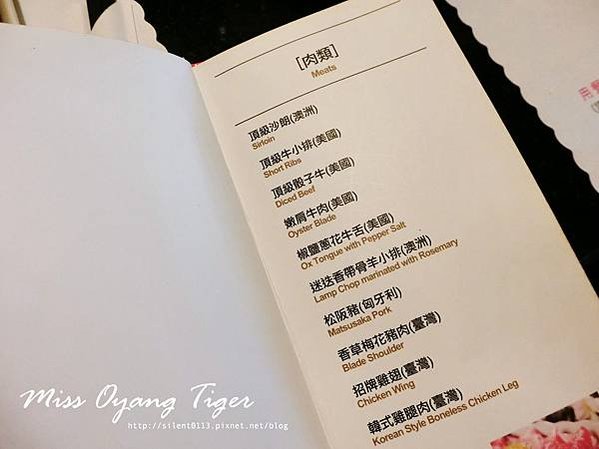 [肉類]
Meats
頂級沙朗(澳洲)
Sirloin
頂級牛小排(美國)
Short Ribs
頂級骰子牛(美國)
Diced Beef
嫩肩牛肉(美國)
Oyster Blade
椒鹽蔥花牛舌(美國)
Ox Tongue with Pepper Salt
迷迭香帶骨羊小排(澳洲)
Lamp Chop marinated with Rosemary
松阪豬(匈牙利)
Matsusaka Pork
香草梅花豬肉(臺灣)
Blade Shoulder
招牌雞翅(臺灣)
Chicken Wing
韓式雞腿肉(臺灣)
Korean Style Boneless Chicken Leg
Miss Oyang Tiger
http://silent0113.pixnet.net/blog